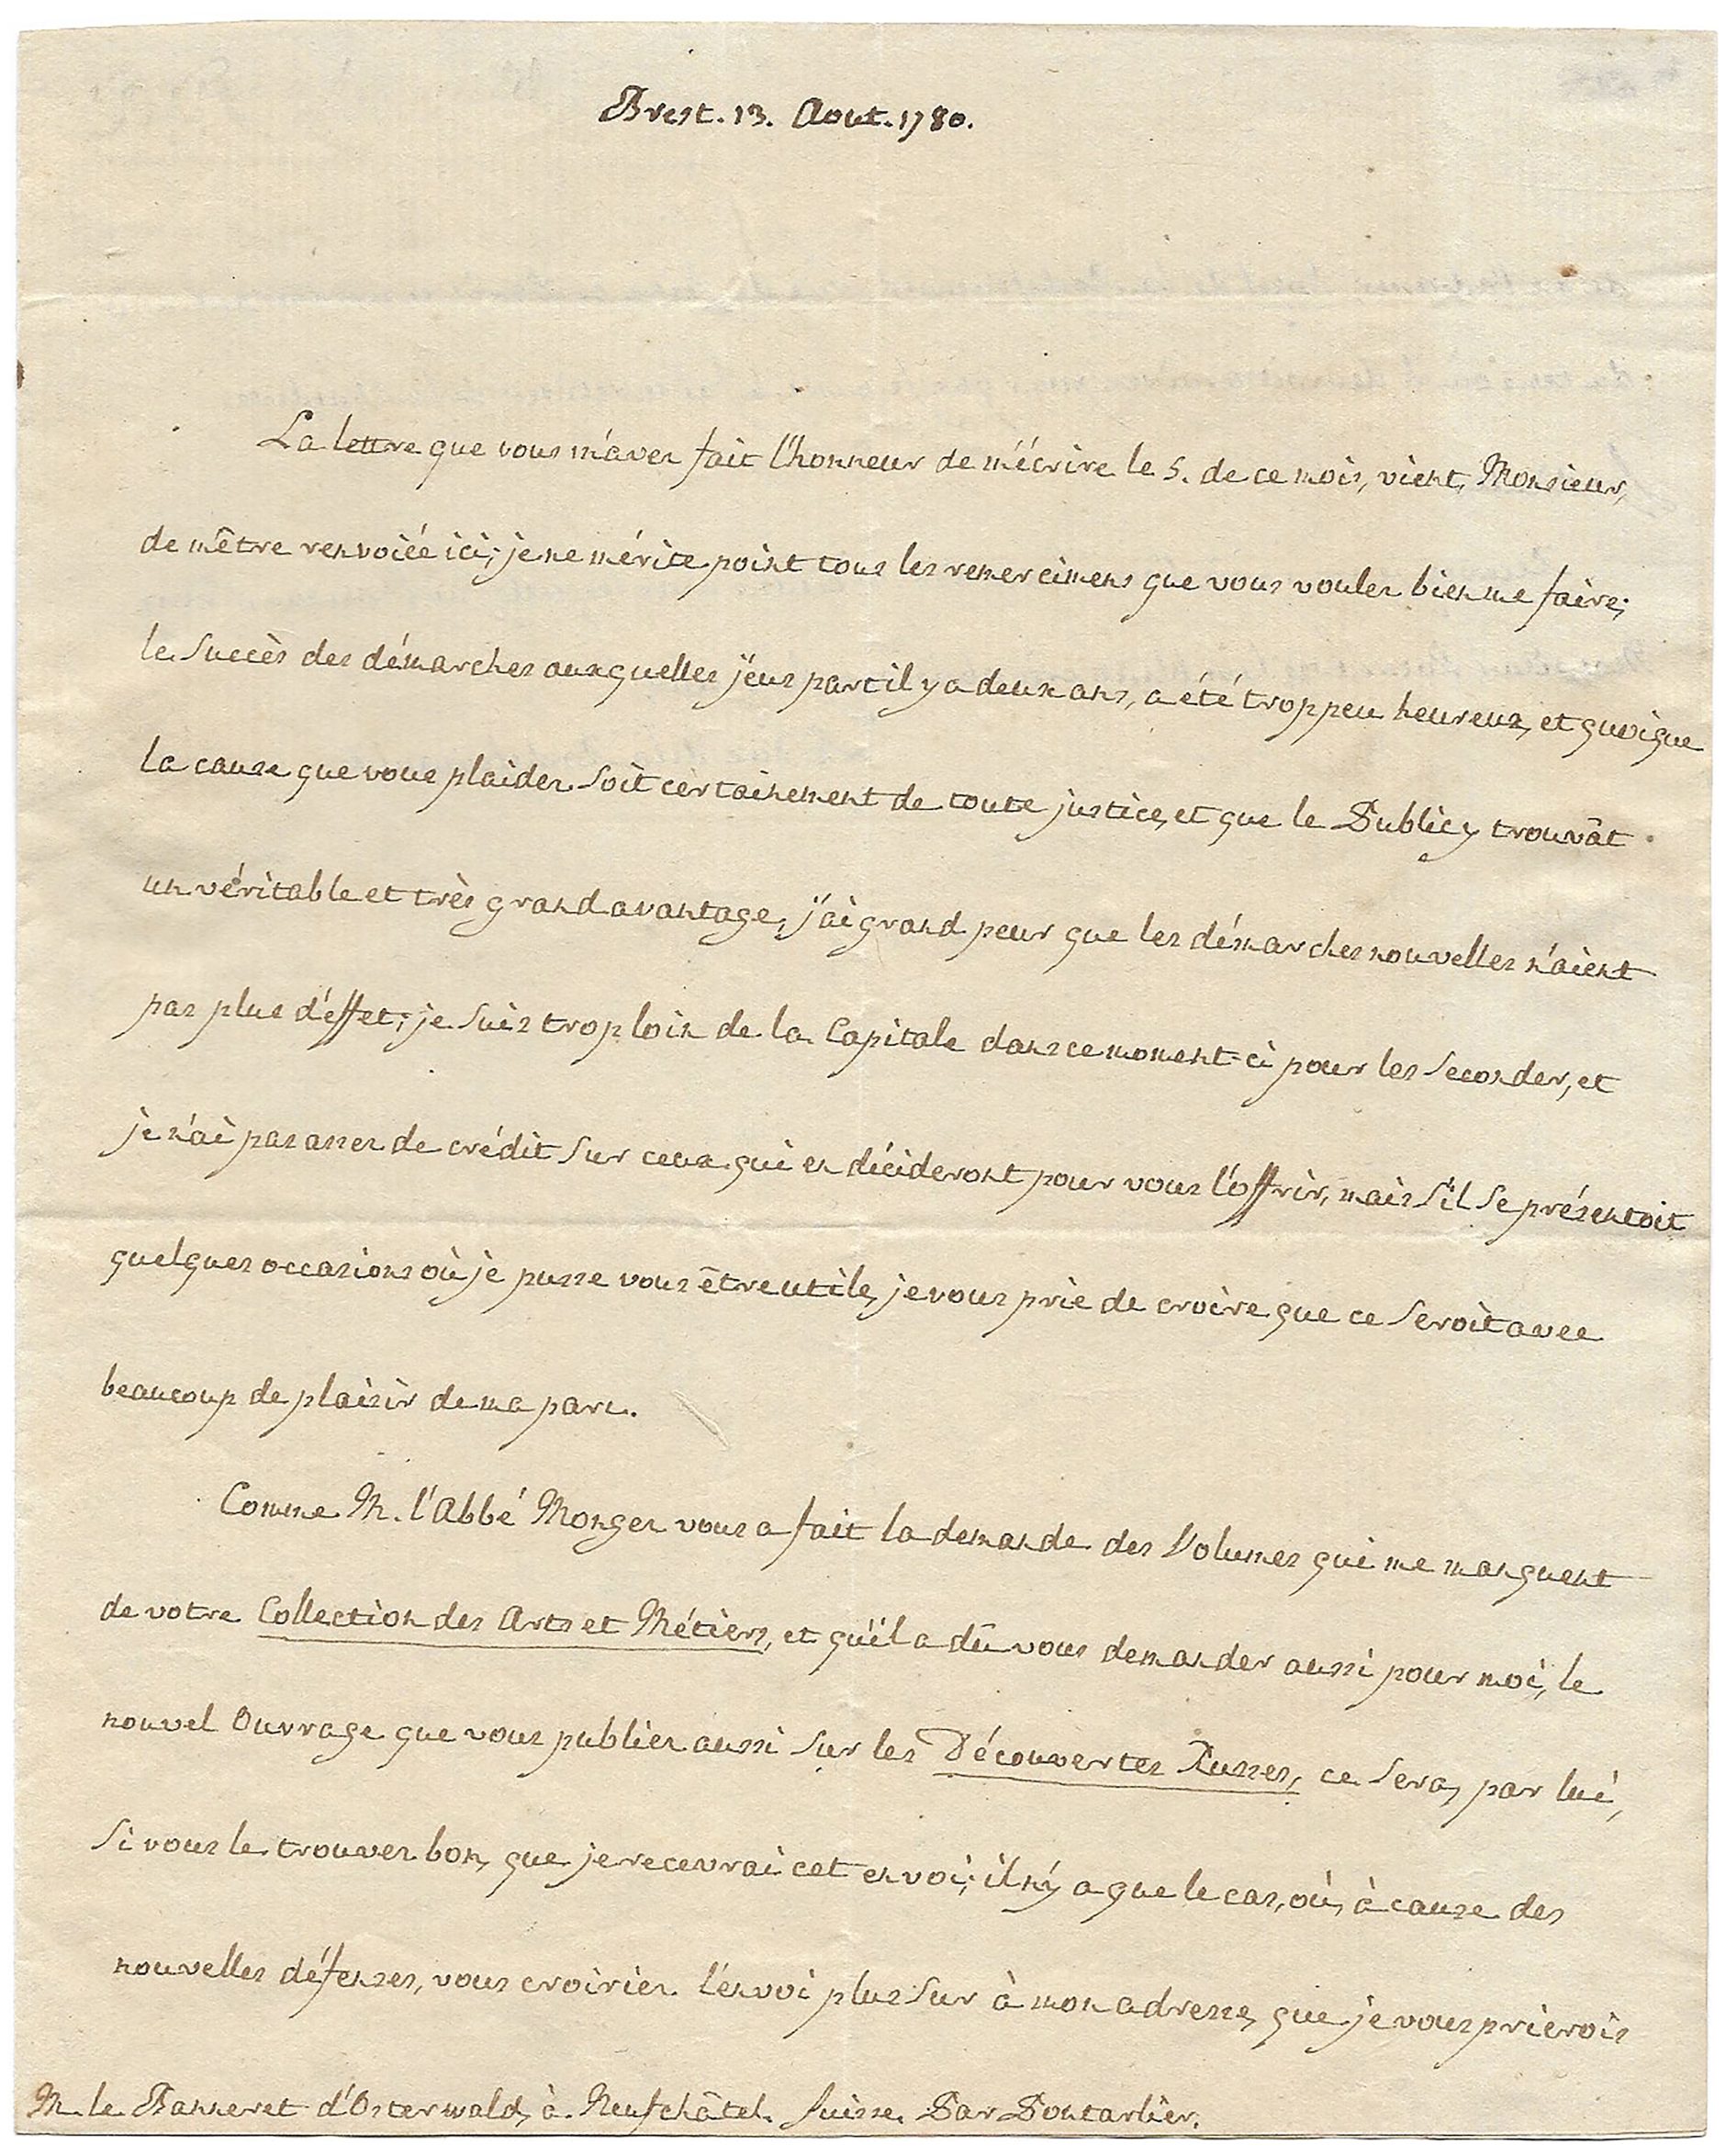 Brest. 13. Aout. 1780.
La lettre que vous m'avez fait l'honneur de m'écrire le 5. de ce mois, vient, Monsieur,
de m'être renvoiée ici; je ne mérite point tous les remercimens que vous voulez bien me faire;
le succès des démarches auxquelles j'eus part il y a deux ans, a été trop peu heureux, et quoique
la cause que vous plaidez soit certainement de toute justice, et que le Public y trouvât
un véritable et très grand avantage, j'ai grand peur que les démarches nouvelles n'aient
pas plus d'effet; je suis trop loin de la Capitale dans ce moment-ci pour les seconder, et
je n'ai pas assez de crédit sur ceux qui en décideront pour vous l'offrir, mais s'il se présentoit
quelques occasions où je pusse vous être utile, je vous prie de croire que ce seroit avec
beaucoup de plaisir de ma part.
Comme M. l'Abbé Mongez vous a fait la demande des Volumes qui me manquent
de votre Collection des Arts et Métiers, et qu'il a dû vous demander aussi pour moi, le
nouvel Ouvrage que vous publiez aussi sur les Découvertes Russes, ce sera, par lui,
si vous le trouvez bon, que je recevrai cet envoi; il n'y a que le cas, où, à cause des
nouvelles défenses, vous croiriez l'envoi plus sur à mon adresse, que je vous prierois
M. le Banneret d'Osterwald, à Neufchâtel. Suisse. Par Pontarlier.